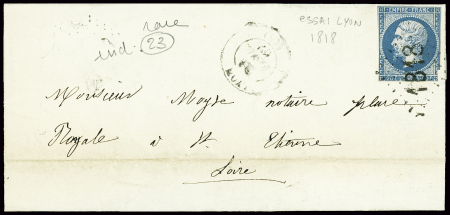 rare
ind. 23
ESSAI LYON
1818
EMPIRE FRANC
1818
LYON
Monsieur Moyse notaire place
Royale à St Etienne
Loire